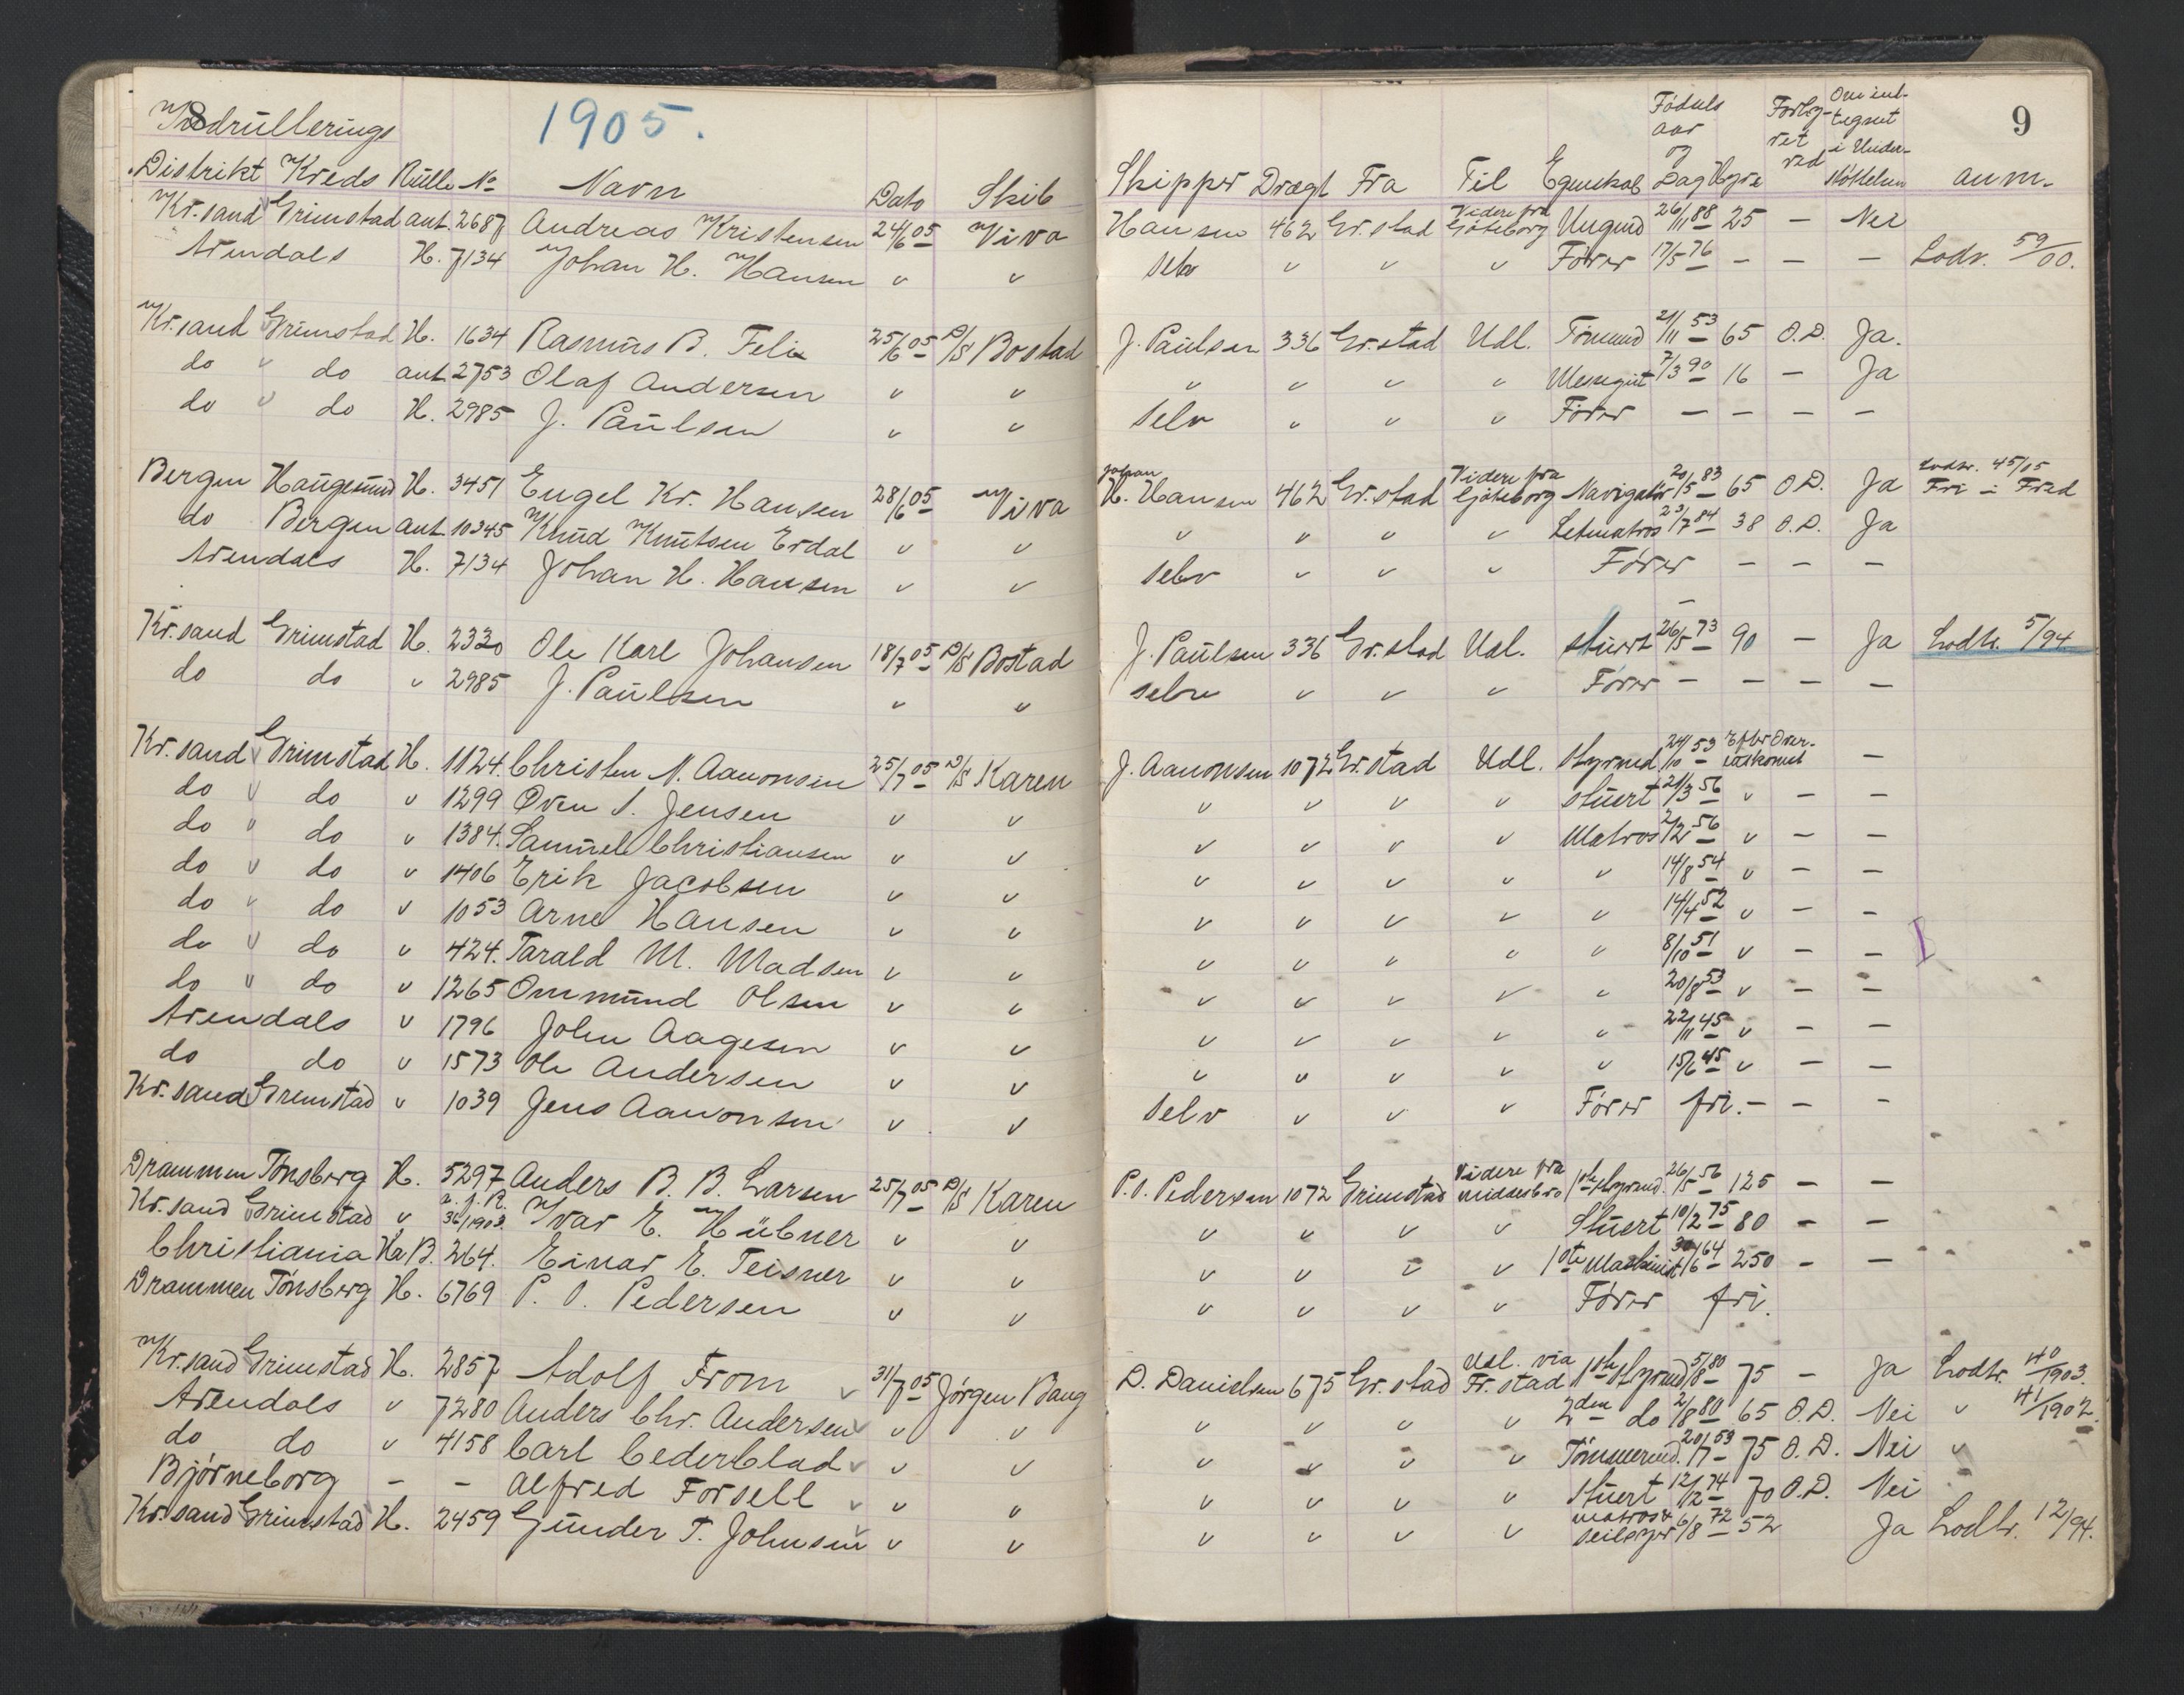 8
Indrullerings 1905.
Distrikt Kreds Rulle No Navn Dato Skib
Kr.sand Grimstad ant. 2687 Andreas Kristensen 24/6 05 Viva
Arendals H. 7134 Johan H. Hansen " "
Kr.sand Grimstad H. 1634 Rasmus B. Felix 25/6 05 D/S Bostad
do " do ant. 2753 Olaf Andersen " "
do " do H. 2985 J. Paulsen " "
Bergen Haugesund H. 3451 Engel Kr. Hansen 28/6 05 Viva
do Bergen ant. 10345 Knud Knutsen Erdal " "
Arendals H. 7134 Johan H. Hansen " "
Kr.sand Grimstad H. 2330 Ole Karl Johansen 18/7 05 D/S Bostad
do do " 2985 J. Paulsen " "
Kr.sand Grimstad H. 1124. Christen N. Aanonsen 25/7 05 D/S Karen
do " do " 1299 Oven S. Jensen " "
do " do " 1384. Samuel Christiansen " "
do " do " 1406 Erik Jacobsen " "
do " do " 1053 Arne Hansen " "
do " do " 424. Tarald M. Madsen " "
do " do " 1265 Ommund Olsen " "
Arendals " 1796 John Aagesen " "
do do " 1573 Ole Andersen " "
Kr.sand Grimstad " 1039 Jens Aanonsen " "
Drammen Tönsberg H. 5297 Anders B. B. Larsen 25/7 05 D/S Karen
Kr.sand Grimstad " 36/1903. Ivar E. Hübner " "
Christiania Ha B. 264. Einar E. Teisner " "
Drammen Tönsberg H. 6769 P. O. Pedersen " "
Kr.sand Grimstad H. 2857 Adolf From 31/7 05 Jörgen Bang
Arendals " 7280 Anders Chr. Andersen " "
do do " 4158 Carl Cederblad " "
Björneborg - - Alfred Forsell " "
Kr.sand Grimstad H. 2459 Gunder T. Johnsen " "
9
Skipper Drægt Fra Til Egenskab Födsels aar og Dag Hyre Forhyret ved Om indtegnet i Under- anm.
Hansen 462 Gr.stad Videre fra Göteborg Ungmd 26/11 88 25 - Nei
Selv " " " Förer 17/5 76 - - - Lodr. 59/00.
J. Paulsen 336 Gr.stad Udl. Tömmd 21/11 53 65 O.D. Ja.
" " " " Messegut 7/3 90 16 - Ja
Selv " " " Förer - - - -
Johan
H. Hansen 462 Gr.stad Videre fra Göteborg Navigatör 20/5 83 65 O.D. Ja Lodtr. 45/05 Fri i Fred
" " " " Letmatros 23/7 84 38 O.D. Ja
Selv " " " Förer - - -
J. Paulsen 336 Gr.stad Udl. stuert 26/5 73 90 - Ja Lodtr. 5/94.
Selv " " " Förer - - - -
J. Aanonsen 1072 Gr.stad Udl. Styrmd 24/10 53 Efter Overenskomst -
" " " " stuert 21/3 56 " - -
" " " " Matros 2/12 56 " - -
" " " " " 14/8 54 " - -
" " " " " 14/4 52 " - -
" " " " " 8/10 51 " - -
" " " " " 20/8 53 " - -
" " " " " 22/11 45 " - -
" " " " " 15/6 45 " - -
Selv " " " Förer fri. - - -
P. O. Pedersen 1072 Grimstad Videre fra 1ste styrmd. 26/5 56 125 - -
" " " " Stuert 10/2 75 80 - -
" " " " 1ste Maskinist 30/6 64 250 - -
" " " " Förer fri.
D. Danielsen 675 Gr.stad Udl. via Fr.stad 1ste Styrmd 5/8 80 75 - Ja Lodtr. 40/1903.
" " " " 2den do 2/8 80 65 O.D. Nei " 41/1902.
" " " " Tömmermd. 20/7 53 75 O.D. Nei "
" " " " Stuert 12/12 74 70 O.D. Nei
" " " " matros & seilsyer 6/8 72 52 Ja Lodtr. 12/94.